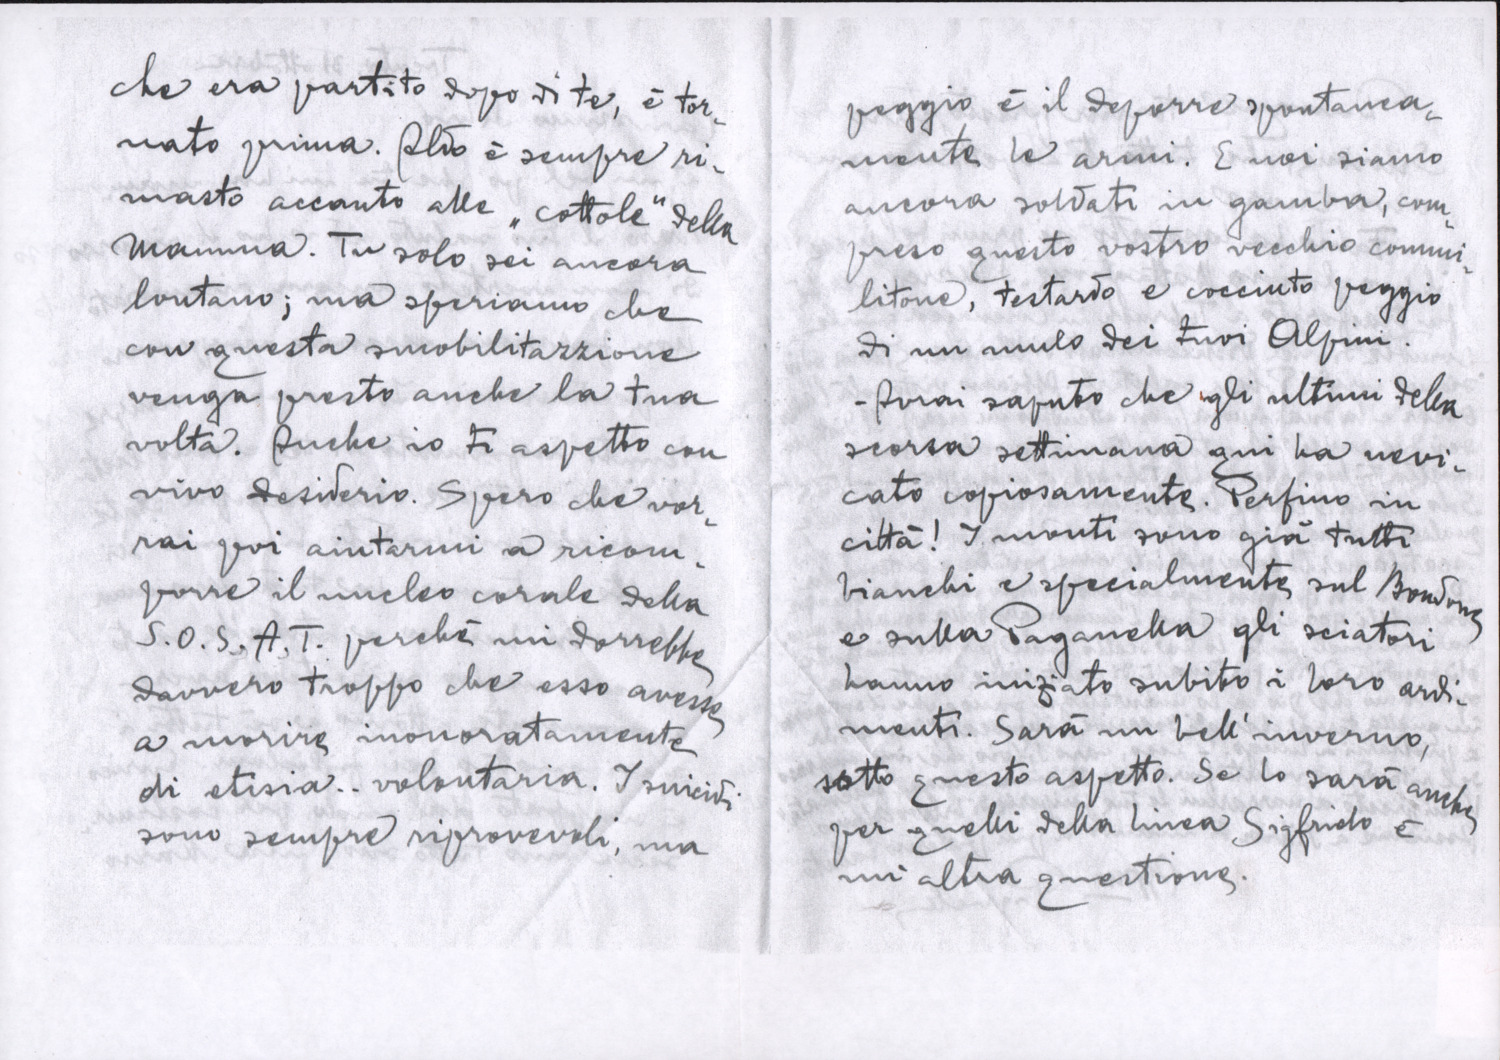 che era partito dopo di te, è tor-
nato prima. Aldo è sempre ri-
masto accanto alle „cottole" della
Mamma. Tu solo sei ancora
lontano; ma speriamo che
con questa smobilitazzione
venga presto anche la tua
volta. Anche io ti aspetto con
vivo desiderio. Spero che vor-
rai poi aiutarmi a ricom-
porre il nucleo corale della
S.O.S.A.T. perché mi dorrebbe
davvero troppo che esso avesse
a morire inonoratamente
di etisia.. volontaria. I suicidi
sono sempre riprovevoli, ma
peggio è il deporre spontanea-
mente le armi. E noi siamo
ancora soldati in gamba, com-
preso questo vostro vecchio commi-
litone, testardo e cocciuto peggio
di un mulo dei tuoi Alpini.
- Avrai saputo che gli ultimi della
scorsa settimana qui ha nevi-
cato copiosamente. Perfino in
città! I monti sono già tutti
bianchi e specialmente sul Bondone
e sulla Paganella gli sciatori
hanno iniziato subito i loro ardi-
menti. Sarà un bell'inverno,
sotto questo aspetto. Se lo sarà anche
per quelli della linea Sigfrido è
un'altra questione.